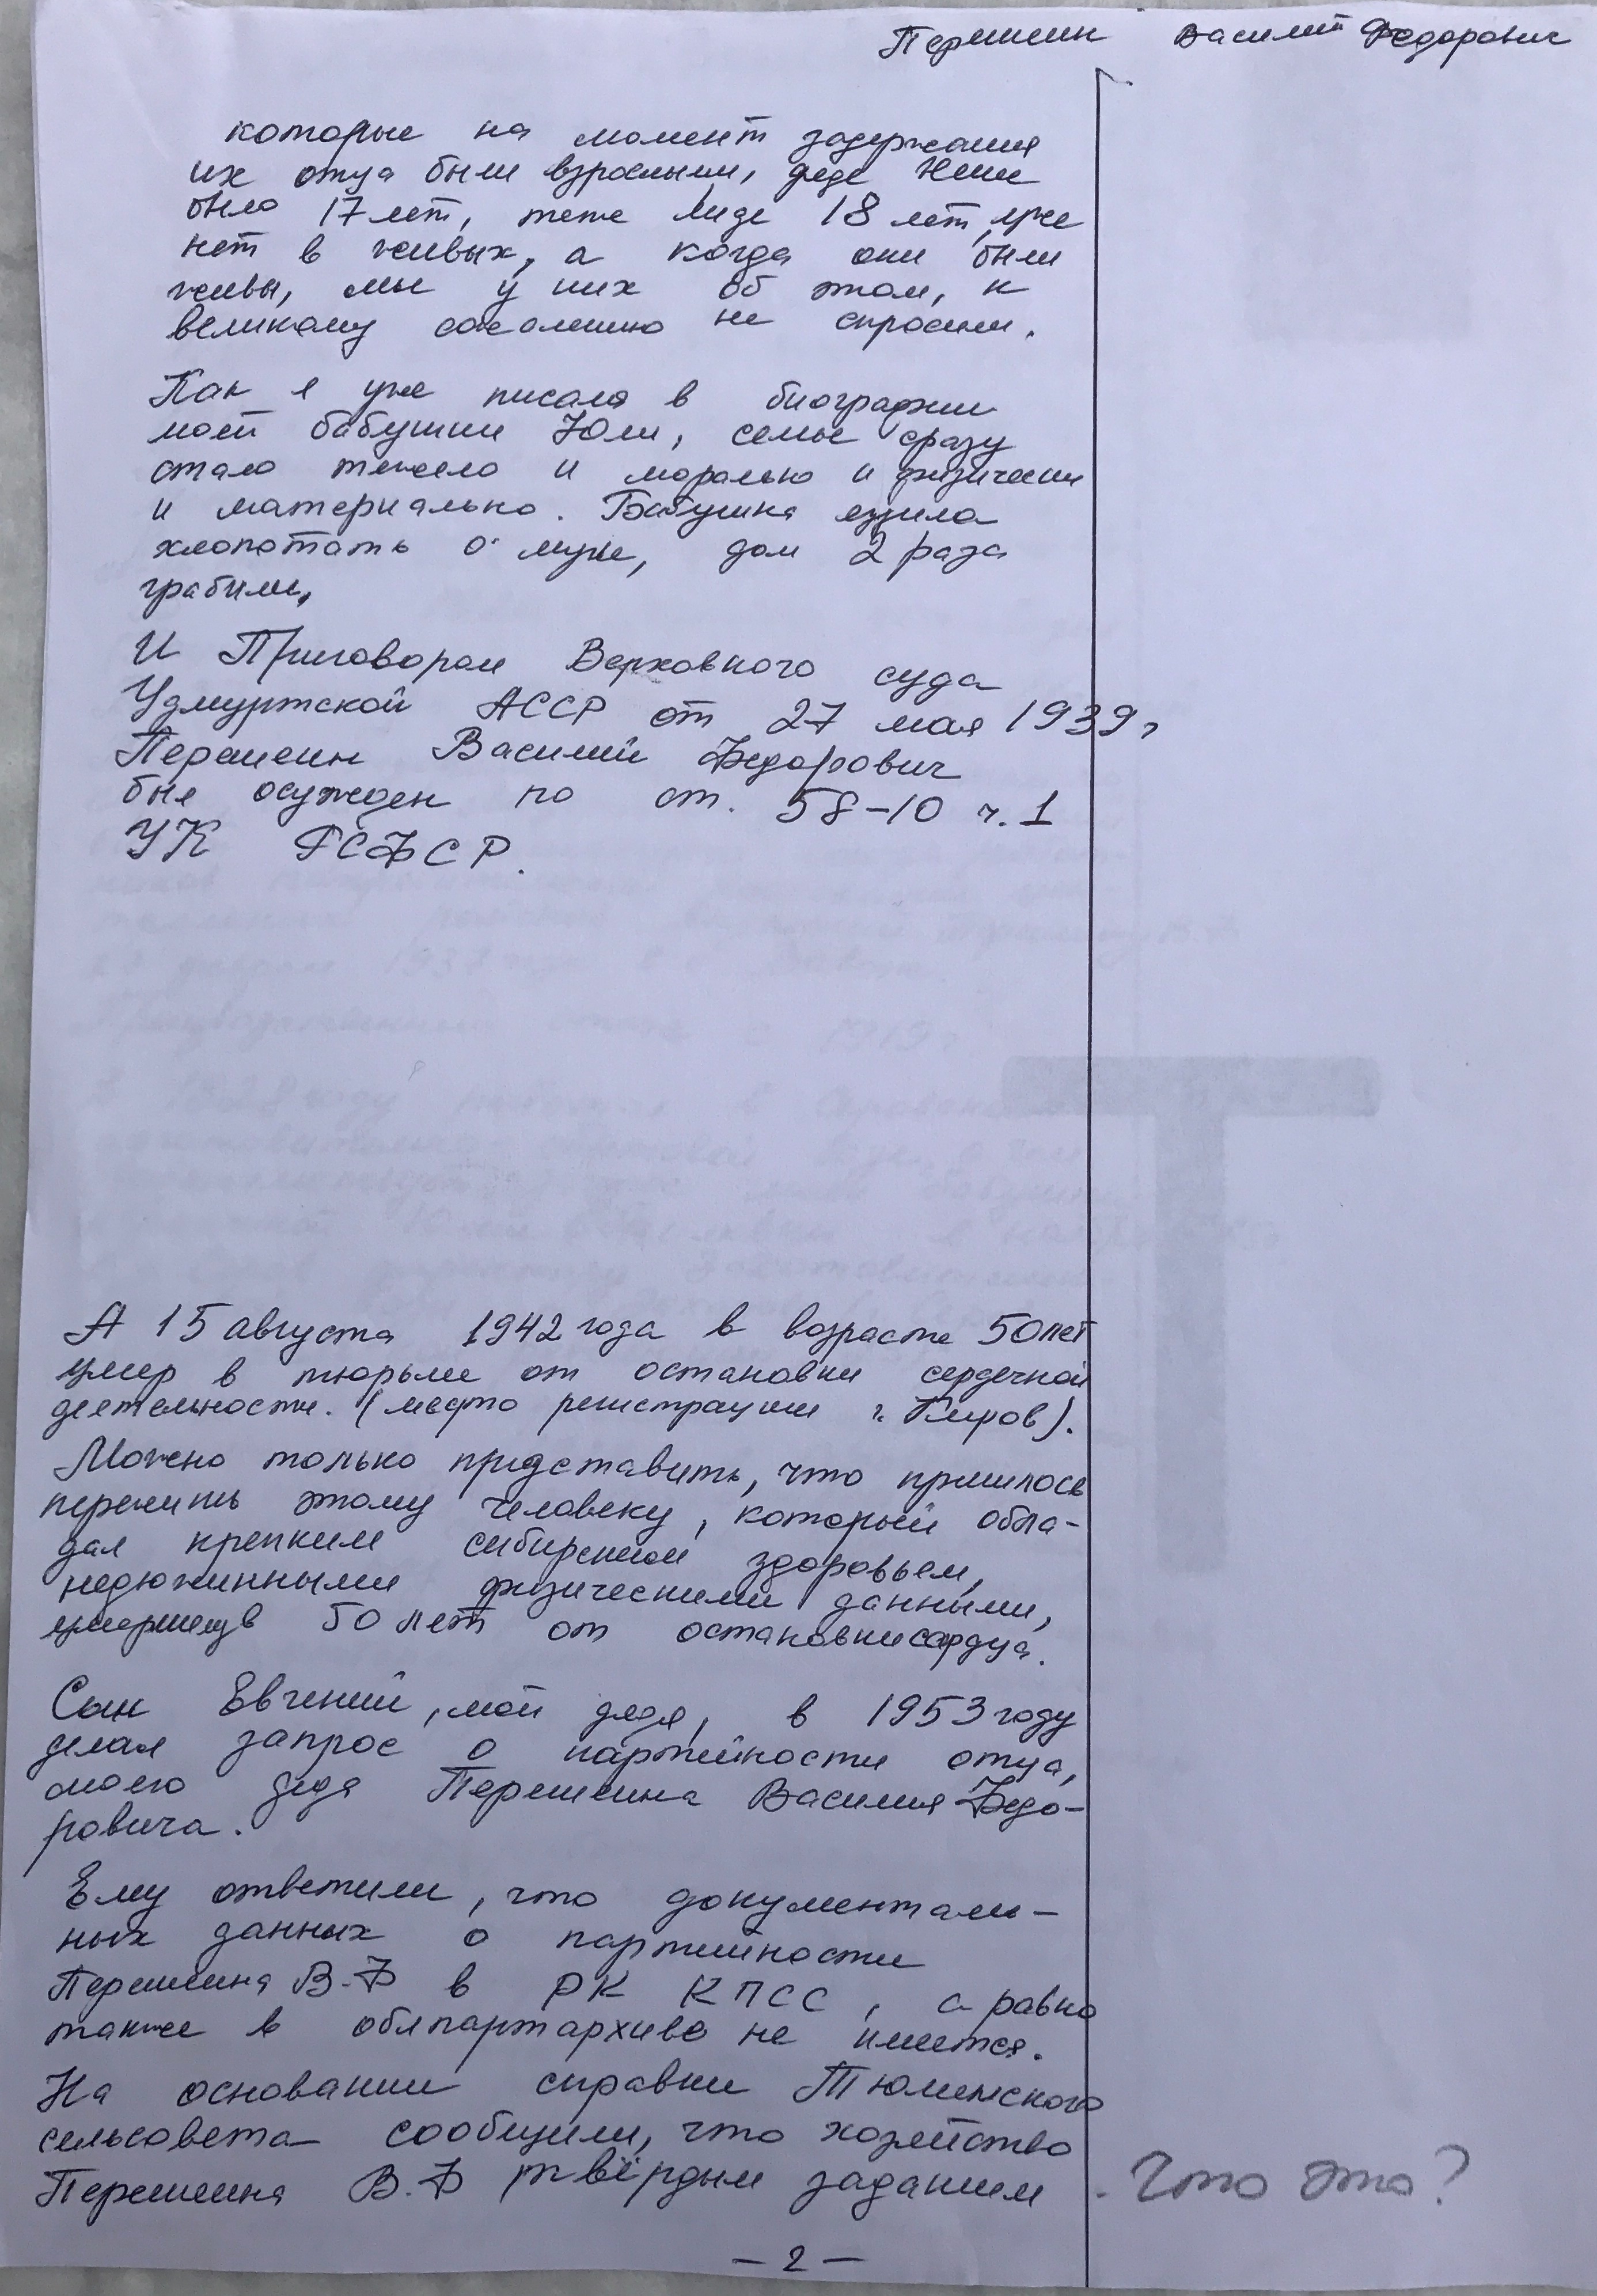 Першин Василий Федорович
которые на момент задержания
их отца были взрослыми, дяде Жене
было 17 лет, тете Лиде 18 лет, уже
нет в живых, а когда они были
живы, мы у них об этом, к
великому сожалению не спросили.
Как я уже писала в биографии
моей бабушки Юли, семье сразу
стало тяжело и морально и физически
и материально. Бабушка ездила
хлопотать о муже, дом 2 раза
грабили,
И Приговором Верховного суда
Удмуртской АССР от 27 мая 1939 г
Першин Василий Федорович
был осужден по ст. 58-10 ч. 1
УК РСФСР.
А 15 августа 1942 года в возрасте 50 лет
умер в тюрьме от остановки сердечной
деятельности. (место регистрации г. Киров).
Можно только представить, что пришлось
пережить этому человеку, который обла-
дал крепким сибирским здоровьем,
недюжинными физическими данными,
умершему в 50 лет от остановки сердца.
Сын Евгений, мой дядя, в 1953 году
делал запрос о партийности отца,
моего деда Першина Василия Федо-
ровича.
Ему ответили, что документаль-
ных данных о партийности
Першина В.Ф в РК КПСС, а равно
также в облпартархиве не имеется.
На основании справки Тюменского
сельсовета сообщили, что хозяйство
Першина В.Ф твёрдым заданием - Что это?
- 2 -